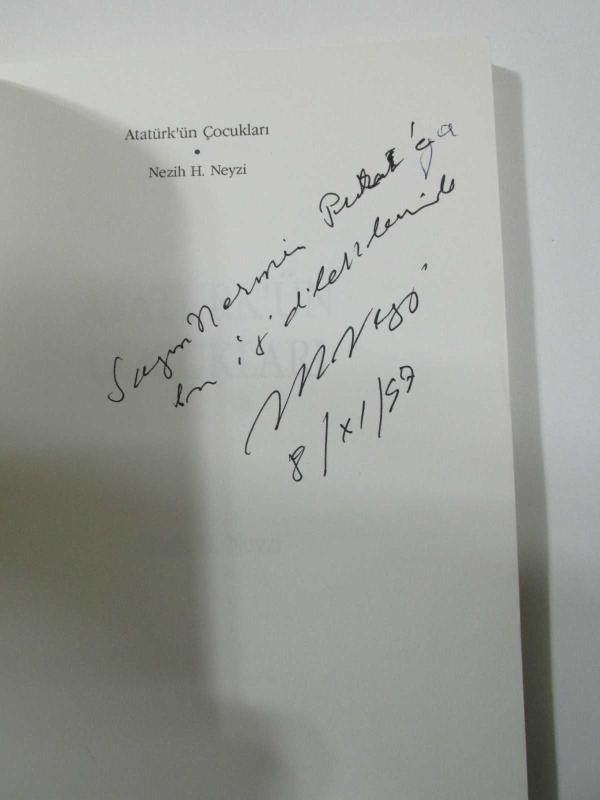 Atatürk'ün Çocukları
•
Nezih H. Neyzi
Sayın Nermin 'ya
en iyi dileklerimle
Neyzi
8/XI/97